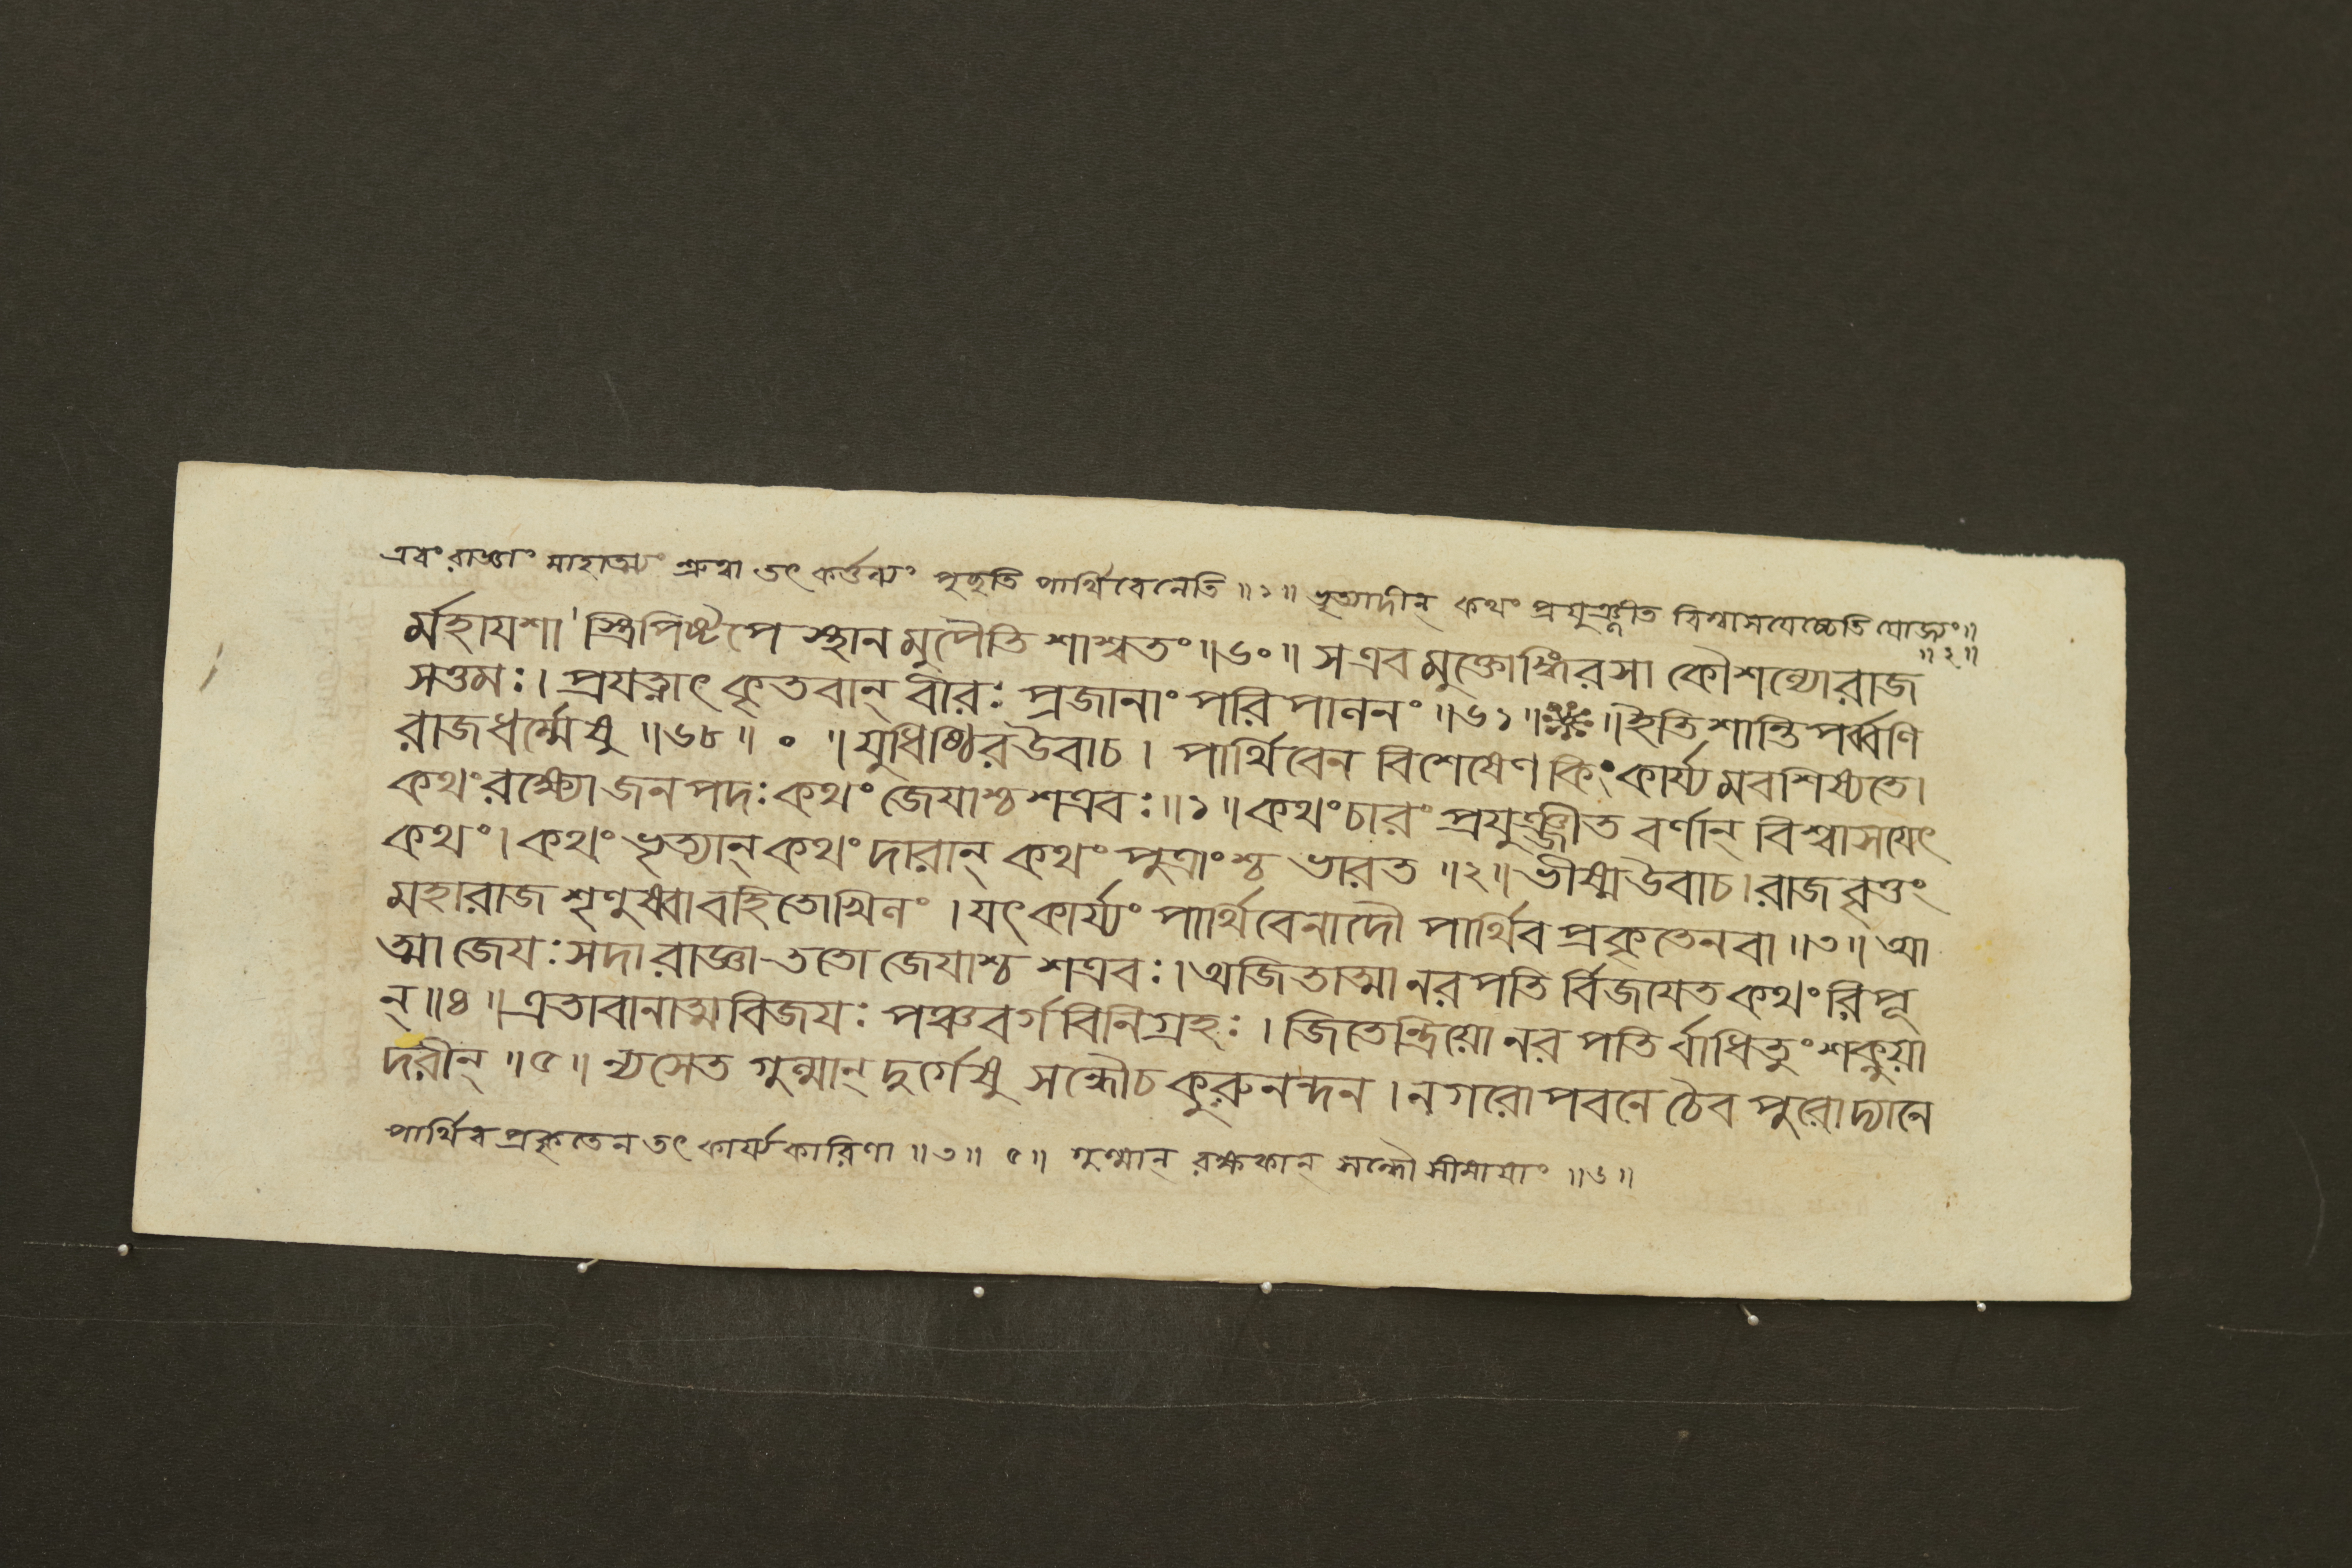 এবং রাজ্ঞাং মাহাত্ম্যং শ্রুত্বা তৎ কর্ত্তব্যং পৃচ্ছতি পার্থিবেনেতি ॥১॥ ভৃত্যাদীন্ কথং প্রযুঞ্জীত বিশ্বাসযেচ্চেতি যোজ্যং॥
॥২॥
র্মহাযশাস্ত্রিপিষ্টপে স্থানমুপৈতি শাশ্বতং ॥৬০॥ স এবমুক্তোঙ্গিরসা কৌশল্যো রাজ
সত্তমঃ। প্রযত্নাৎ কৃতবান্ বীরঃ প্রজানাং পরিপালনং ॥৬১॥ ॥ ইতি শান্তিপর্ব্বণি
রাজধর্ম্মেষু ॥৬৮॥ ০ ॥ যুধিষ্ঠির উবাচ। পার্থিবেন বিশেষেণ কিং কার্য্যমবশিষ্যতে।
কথং রক্ষ্যো জনপদঃ কথং জেযাশ্চ শত্রবঃ॥১॥ কথং চারং প্রযুঞ্জীত বর্ণান্ বিশ্বাসযেৎ
কথং। কথং ভৃত্যান্ কথং দারান্ কথং পুত্রাংশ্চ ভারত ॥২॥ ভীষ্ম উবাচ। রাজবৃত্তং
মহারাজ শৃণুষ্বাবহিতোখিলং। যৎ কার্য্যং পার্থিবেনাদৌ পার্থিবপ্রকৃতেন বা ॥৩॥ আ
ত্মা জেযঃ সদা রাজ্ঞা ততো জেযাশ্চ শত্রবঃ। অজিতাত্মা নরপতির্বিজযেত কথং রিপূ
ন্ ॥৪॥ এতাবানাত্মবিজযঃ পঞ্চবর্গবিনিগ্রহঃ। জিতেন্দ্রিয়ো নরপতির্বাধিতুং শক্নুয়া
দরীন্ ॥৫॥ ন্যসেত গুল্মান্ দুর্গেষু সন্ধৌ চ কুরুনন্দন। নগরোপবনে চৈব পুরোদ্যানে
পার্থিবপ্রকৃতেন তৎ কার্য্যকারিণা ॥৩॥ ৫॥ গুল্মান্ রক্ষকান্ সন্ধৌ সীমাযাং ॥৬॥